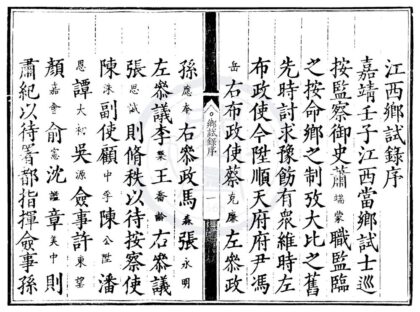 江西鄉試錄序
嘉靖壬子江西當鄉試士巡
按監察御史蕭端蒙職監臨
之按命鄉之制攷大比之舊
先時討求豫飭有衆維時左
布政使今陞順天府府尹馮
岳右布政使蔡克廉左叅政
鄉試錄序
一
孫應奎右叅政馬森張永明
左叅議李棨王喬齡右叅議
張思誠則脩秩以待按察使
陳洙副使顧中孚陳公陞潘
恩譚大初吳源僉事許東望
顏嘉會俞憲沈謐章美中則
肅紀以待署都指揮僉事孫